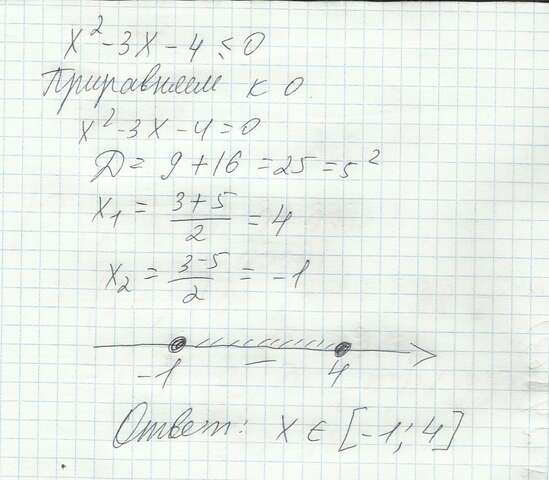 x² - 3x - 4 ≤ 0
Приравняем к 0
x² - 3x - 4 = 0
D = 9 + 16 = 25 = 5²
x₁ = (3+5)/2 = 4
x₂ = (3-5)/2 = -1
-1 — 4
Ответ: x ∈ [-1; 4]